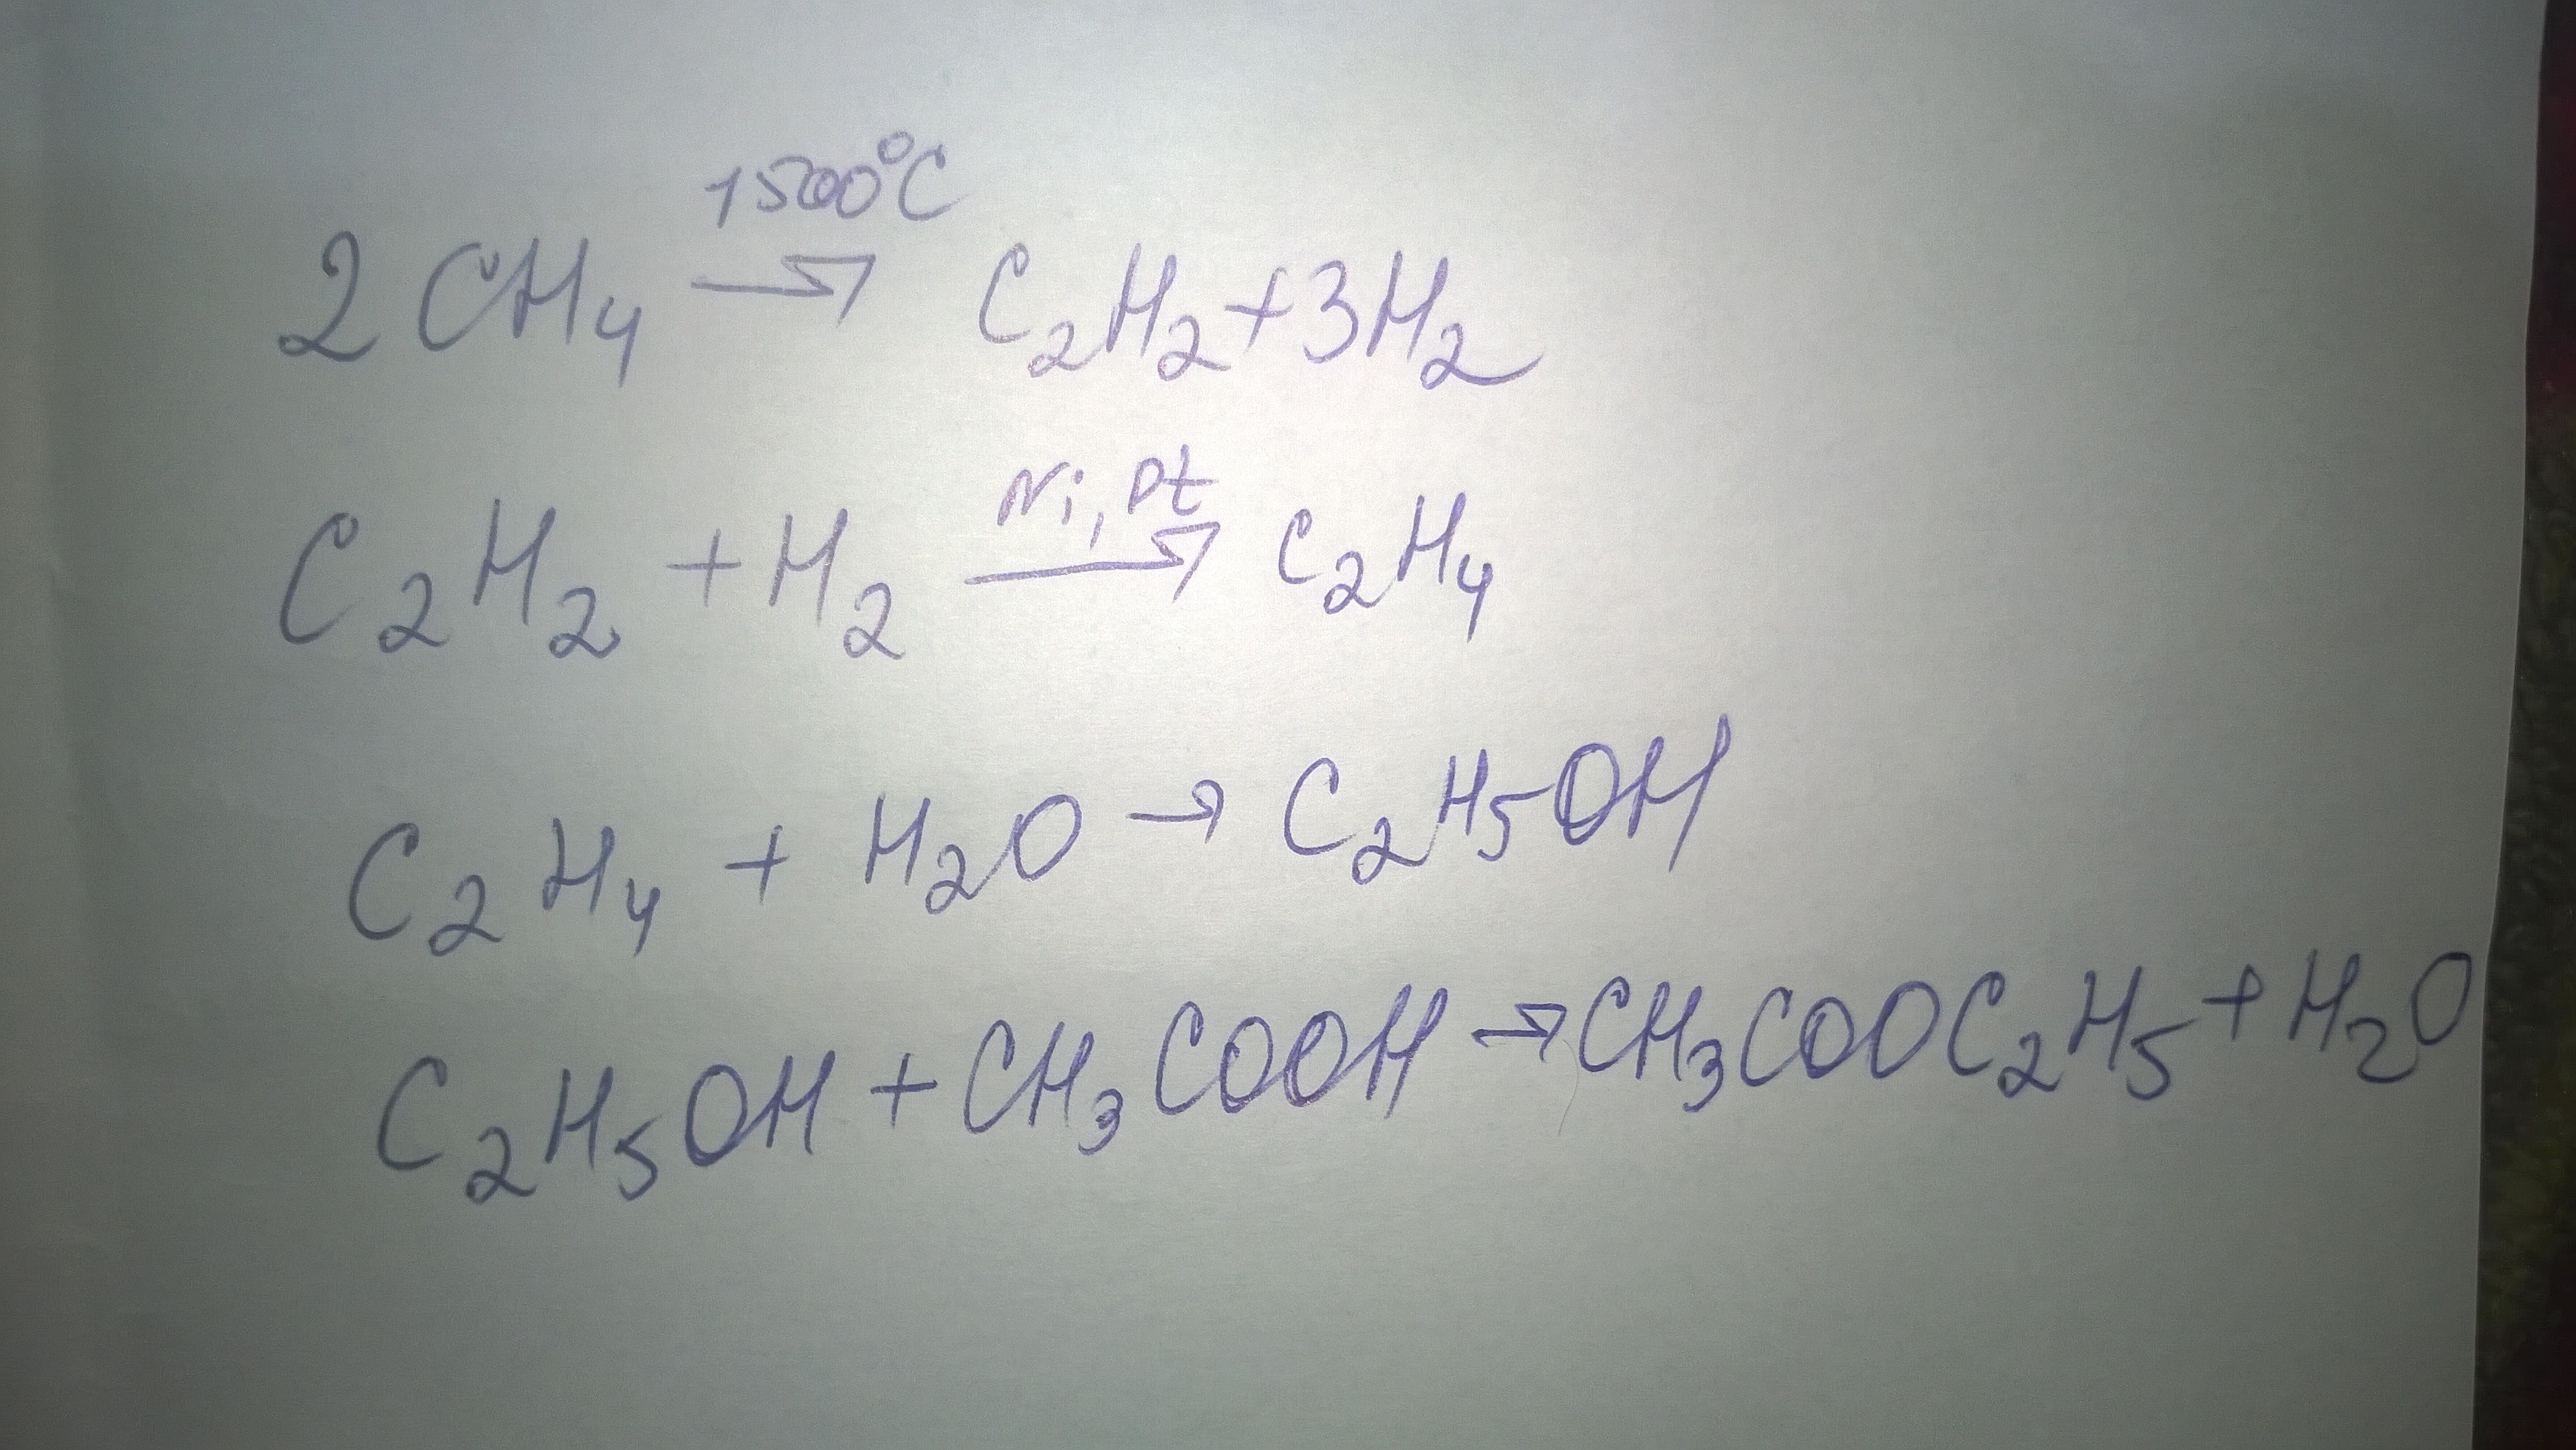 2CH₄ →(1500°C) C₂H₂+3H₂
C₂H₂ + H₂ →(Ni, Pt) C₂H₄
C₂H₄ + H₂O → C₂H₅OH
C₂H₅OH + CH₃COOH → CH₃COOC₂H₅ + H₂O